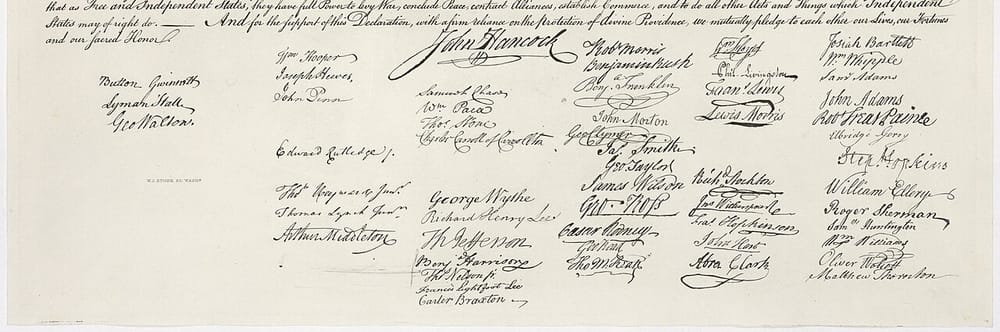 that as Free and Independent States, they have full Power to levy War, conclude Peace, contract Alliances, establish Commerce, and to do all other Acts and Things which Independent
States may of right do. — And for the support of this Declaration, with a firm reliance on the protection of divine Providence, we mutually pledge to each other our Lives, our Fortunes
and our sacred Honor.
Button Gwinnett
Lyman Hall
Geo Walton.
W. J. STONE SC. WASHn
Wm Hooper
Joseph Hewes,
John Penn
Edward Rutledge /.
Thos Heyward Junr.
Thomas Lynch Junr.
Arthur Middleton
John Hancock
Samuel Chase
Wm Paca
Thos Stone
Charles Carroll of Carrollton
George Wythe
Richard Henry Lee
Th Jefferson
Benj Harrison
Thos Nelson jr.
Francis Lightfoot Lee
Carter Braxton
Robt Morris
Benjamin Rush
Benj. Franklin
John Morton
Geo Clymer
Jas. Smith
Geo Taylor
James Wilson
Geo. Ross
Caesar Rodney
Geo Read
Tho M:Kean
Wm Floyd
Phil. Livingston
Frans. Lewis
Lewis Morris
Richd. Stockton
Jno Witherspoon
Fras. Hopkinson
John Hart
Abra Clark
Josiah Bartlett
Wm Whipple
Saml Adams
John Adams
Robt Treat Paine
Elbridge Gerry
Step. Hopkins
William Ellery
Roger Sherman
Saml Huntington
Wm Williams
Oliver Wolcott
Matthew Thornton